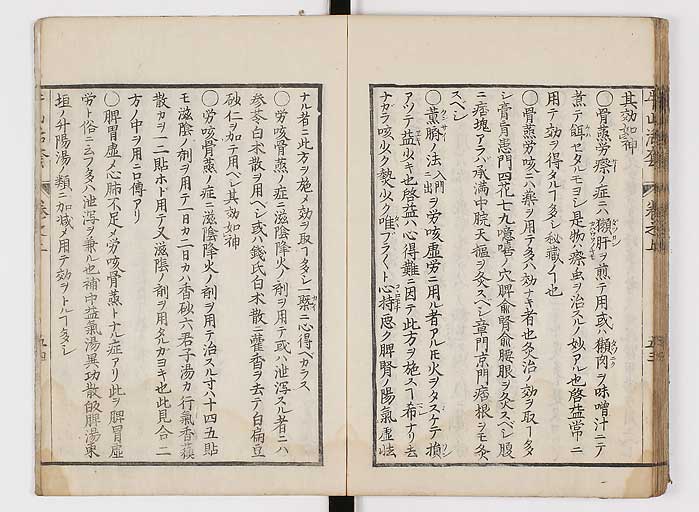 其効如神
◯骨蒸労瘵ノ症ニハ獺肝ヲ煎テ用或ハ獺肉ヲ味噌汁ニテ
煮テ餌セタルモヨシ是物ハ瘵虫ヲ治スルノ妙アル也啓益常ニ
用テ効ヲ得タルヿ多シ秘蔵ノヿ也
◯骨蒸労咳ニハ薬ヲ用テ多ハ効ナキ者也灸治ノ効ヲ取ヿ多
シ膏肓患門四花七九噫嘻ノ穴脾俞腎俞腰眼ヲ灸スベシ腹
ニ痞塊アラハ承満中脘天樞ヲ灸スベシ章門京門痞根ヲモ灸
スベシ
◯薫臍ノ法入門ニ出ヲ労咳虚労ニ用ル者アルヒ火ヲタスケテ損
アツテ益少キ也啓益ハ心得難ニ因テ此方ヲ施スヿ希ナリ去
ナガラ咳少ク熱少ク唯ブラ〱ト心持悪ク脾腎ノ陽氣虚怯
ナル者ニ此方ヲ施メ効ヲ取ヿ多シ一概ニ心得ベカラス
◯労咳骨蒸ノ症ニ滋陰降火ノ剤ヲ用テ或ハ泄瀉スル者ニハ
参苓白朮散ヲ用ベシ或ハ錢氏白朮散ニ藿香ヲ去テ白扁豆
砂仁ヲ加テ用ベシ其効如神
◯労咳骨蒸ノ症ニ滋陰降火ノ剤ヲ用テ治スル寸ハ十四五貼
モ滋陰ノ剤ヲ用テ一日カ二日カハ香砂六君子湯カ行氣香蘓
散カヲ一二貼ホト用テ又滋陰ノ剤ヲ用タルカヨキ也此見合ニ
方ノ中ヲ用ニ口傳アリ
◯脾胃虚ノ心肺不足メ労咳骨蒸トナル症アリ此ヲ脾胃虚
労ト俗ニ云フ多ハ泄瀉ヲ兼ル也補中益氣湯異功散啟脾湯東
垣ノ升陽湯ノ類ニ加減メ用テ効ヲトルヿ多シ